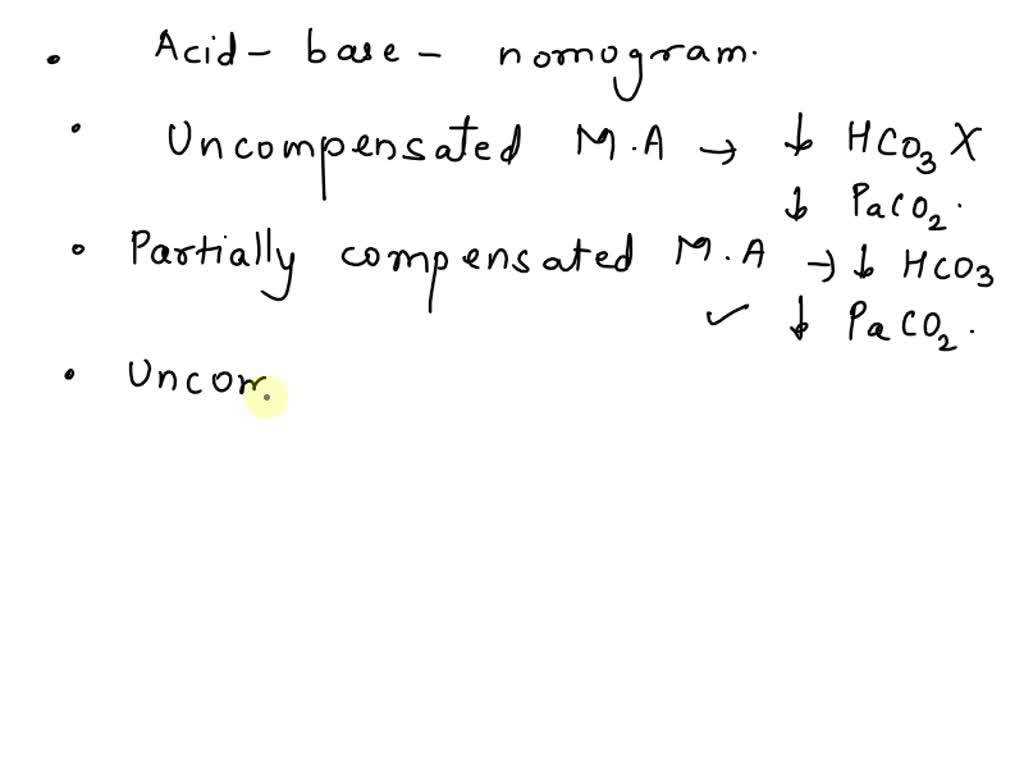 • Acid - base - nomogram.
• Uncompensated M.A → ↓ HCO₃ X
↓ PaCO₂.
• Partially compensated M.A → ↓ HCO3
✓ ↓ PaCO₂.
• Uncom